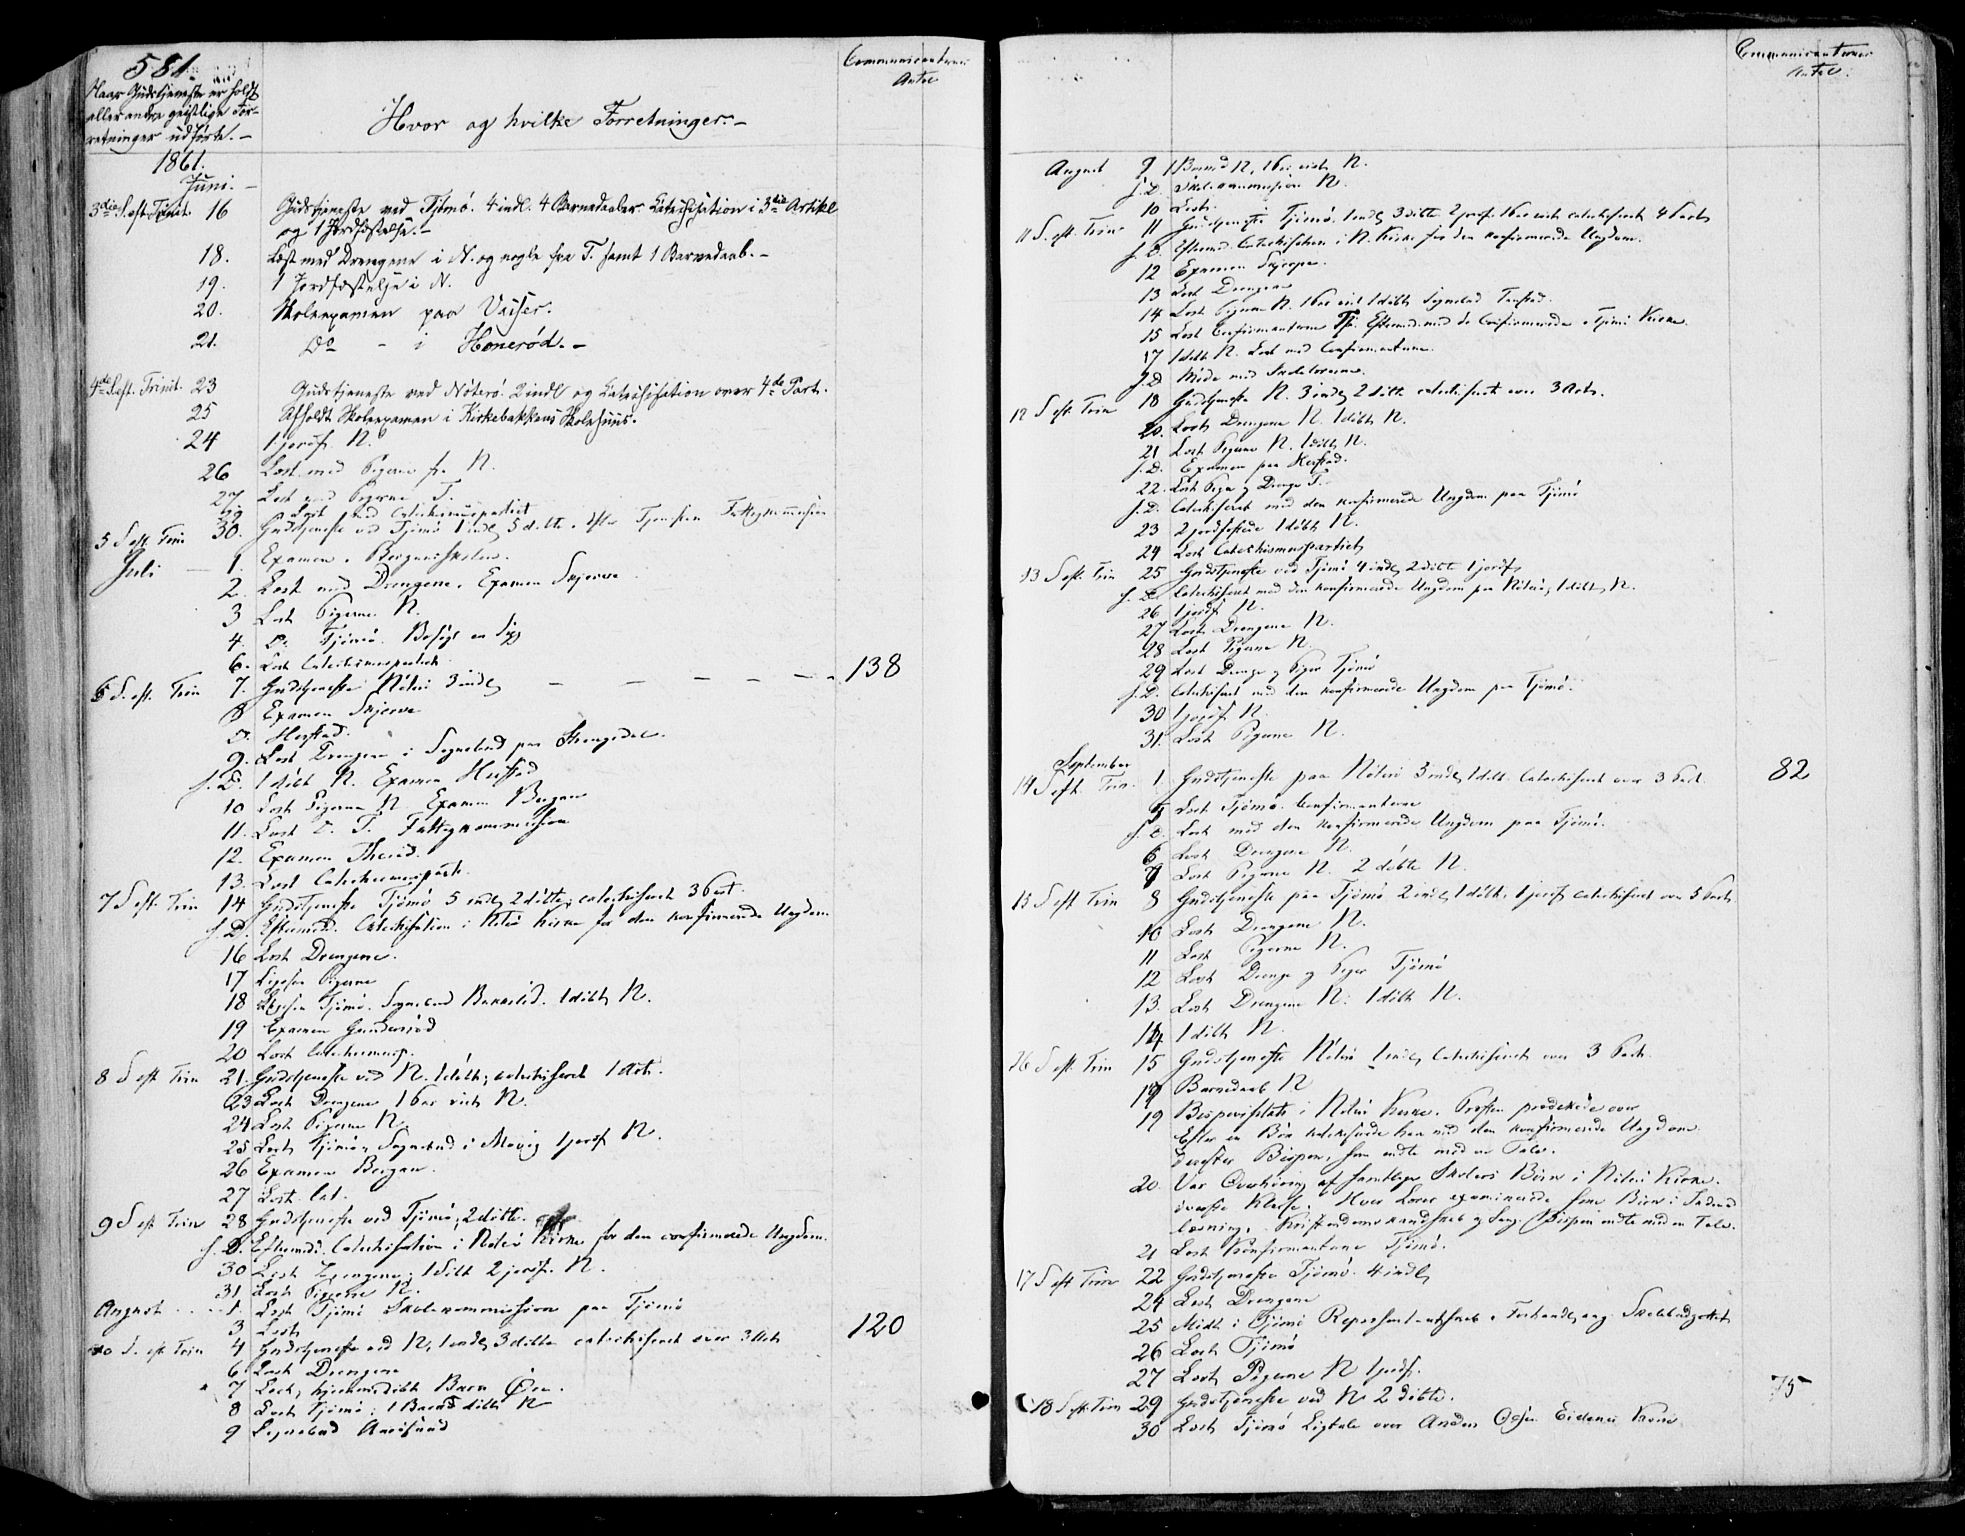 581.
Naar Gudstjeneste er holdt
eller andre geistlige For-
retninger udførte. -
Hvor og hvilke Forretninger. -
Communicanternes
Antal
1861.
Juni. -
3die S. eft. Trinit. 16 Gudstjeneste ved Tjømø. 4 indl. 4 Barnedaaber. Catechisation i 3die Artikel
og 1 Jordfæstelse. -
18. Læst med Drengene i N. og nogle fra T. samt 1 Barnedaab. -
19. 1 Jordfæstelse i N.
20. Skoleexamen paa
21. Do - i Hønerød. -
4de S. eft. Trinit. 23 Gudstjeneste ved Nøterø. 2 indl og Catechisation over 4de Part.
25 Afholdt Skoleexamen i Kirkebakkens Skolehuus.
24 1 jordf. N.
26 Læst med Pigerne fr. N.
27 Læst med Pigerne T.
29 Læst med Catechismuspartiet
5 S eft. Trin 30. Gudstjeneste ved Tjømø 1 indl 5 døbte. efter Tjenesten Fattigkommission
Juli - 1. Examen i Bergansskolen.
2. Læst med Drengene. Examen Skjerve
3 Læst Pigerne N.
4. D. Tjømø. Besøgt en Syg
6. Læst Catechismuspartiet
6 S. eft. Trin 7. Gudstjeneste Nøterø 3 indl - - - - - - 138
8 Examen Skjerve
D. Herstad.
9. Læst Drengene i Sognebud paa
s. D. 1 døbt N. Examen Herstad
10 Læst Pigerne N. Examen Bergan
11. Læst D. T. Fattigkommission
12. Examen
13. Læst Catechismuspart.
7 S eft. Trin 14 Gudstjeneste Tjømø 5 indl 2 døbte; catechiseret 3 Part.
s. D. Eftermd. Catechisation i Nøterø Kirke for den konfirmerede Ungdom
16 Læst Drengene.
17 Ligesaa Pigerne
18 Ligesaa Tjømø. Sognebud 1 døbt N.
19 Examen
20 Læst Catechismusp.
8 S eft Trin 21. Gudstjeneste ved N. 1 døbt; catechiseret 1 Art.
23 Læst Drengene 1 Par viet N.
24 Læst Pigerne N.
25 Læst Tjømø, Sognebud i 1 jordf N.
26 Examen Bergan.
27 Læst. Cat.
9 S eft Trin 28 Gudstjeneste ved Tjømø; 2 døbte.
s. D. Eftermd. Catechisation i Nøterø Kirke for den confirmerede Ungdom.
30 Læst Drengene; 1 døbt 2 jordf. N.
31 Læst Pigerne N.
August . . . . 1. Læst Tjømø Skolekommission paa Tjømø
3 Læst
10 S. eft. Trin 4 Gudstjeneste ved N, 1 indl 3 døbte catechiseret over 3 Art 120
6 Læst Drengene
7 Læst, hjemmedøbt Barn
8 Læst Tjømø; 1 Barn døbt N
9 Sognebud
Communicanternes
Antal.
August 9 1 N, 1 Par viet N.
s. D. Skolekommission N.
10 Læst.
11 S. eft. Trin 11 Gudstjeneste Tjømø. 1 indl 3 døbte 2 jordf. 1 Par viet catechiseret 4 Part
s. D. Eftermd. Catechisation i N. Kirke for den konfirmerede Ungdom.
12 Examen Skjerve.
13 Læst Drengene
14 Læst Pigerne N. 1 Par viet 1 døbt Sognebud
15 Læst Confirmanterne Tj. Eftermd. med de Confirmerede i Tjømø Kirke.
17 1 døbt N. Læst med Confirmanterne.
s. D Møde med Skolelærerne.
12 S eft Trin 18 Gudstjeneste N. 3 indl 2 døbte catechiseret over 3 Art.
20. Læst Drengene N. 1 døbt N.
21 Læst Pigerne N. 1 døbt N.
s. D. Examen paa Herstad.
22. Læst Piger og Drenge T.
s. D. Catechiseret med den konfirmerede Ungdom paa Tjømø
23 2 jordfæstede 1 døbt N.
24 Læst Catechismuspartiet
13 S eft. Trin 25 Gudstjeneste ved Tjømø 4 indl 2 døbt 1 jordf
s. D. Catechiseret med den konfirmerede Ungdom paa Nøterø, 1 døbt, N.
26 1 jordf N.
27 Læst Drengene N.
28 Læst Pigerne N.
29 Læst Drenge og Piger Tjømø
s. D. Catechiseret med den konfirmerede Ungdom paa Tjømø.
30 1 jordf. N.
31. Læst Pigerne N.
September
14 S eft. Trin. 1. Gudstjeneste paa Nøterø 3 indl 1 døbt. Catechiseret over 3 Part. 82
5 Læst Tjømø. Confirmanterne
s. D. Læst med den konfirmerede Ungdom paa Tjømø.
6 Læst Drengene N.
7 Læst Pigerne N. 2 døbte N.
15 S eft Trin 8 Gudstjeneste paa Tjømø 2 indl 1 døbt. 1 jordf catechiseret over 5 Part.
10 Læst Drengene N.
11 Læst Pigerne N.
12 Læst Drenge og Piger Tjømø
13. Læst Drengene N. 1 døbt N.
14 1 døbt N.
16 S eft. Trin 15 Gudstjeneste Nøterø 1 indl Catechiseret over 3 Part.
17 Barnedaab N
19 Bispevisitats i Nøterø Kirke. Provsten prædikede over
Efter en Bøn katekiserede han med den konfirmerede Ungdom
derefter Bispen, som endte med en Tale.
20. Var Overhøring af samtlige Skolers Børn i Nøterø Kirke.
øverste Klasse. Hver Lærer examinerede sine Børn i Indenad
læsning, Kristendomskundskab og Sang. Bispen endte med en Tale.
21 Læst Konfirmanterne Tjømø.
17 S eft Trin 22 Gudstjeneste Tjømø. 4 indl
24 Læst Drengene
25 Mødt i Tjømø Repræsentantskab i Forhandl. ang. Skolebudgettet
26 Læst Tjømø
27 Læst Pigerne N 1 jordf.
18 S. eft. Trin 29 Gudstjeneste ved N 2 døbte. 75
30 Læst Tjømø Ligtale over Anders Olsen